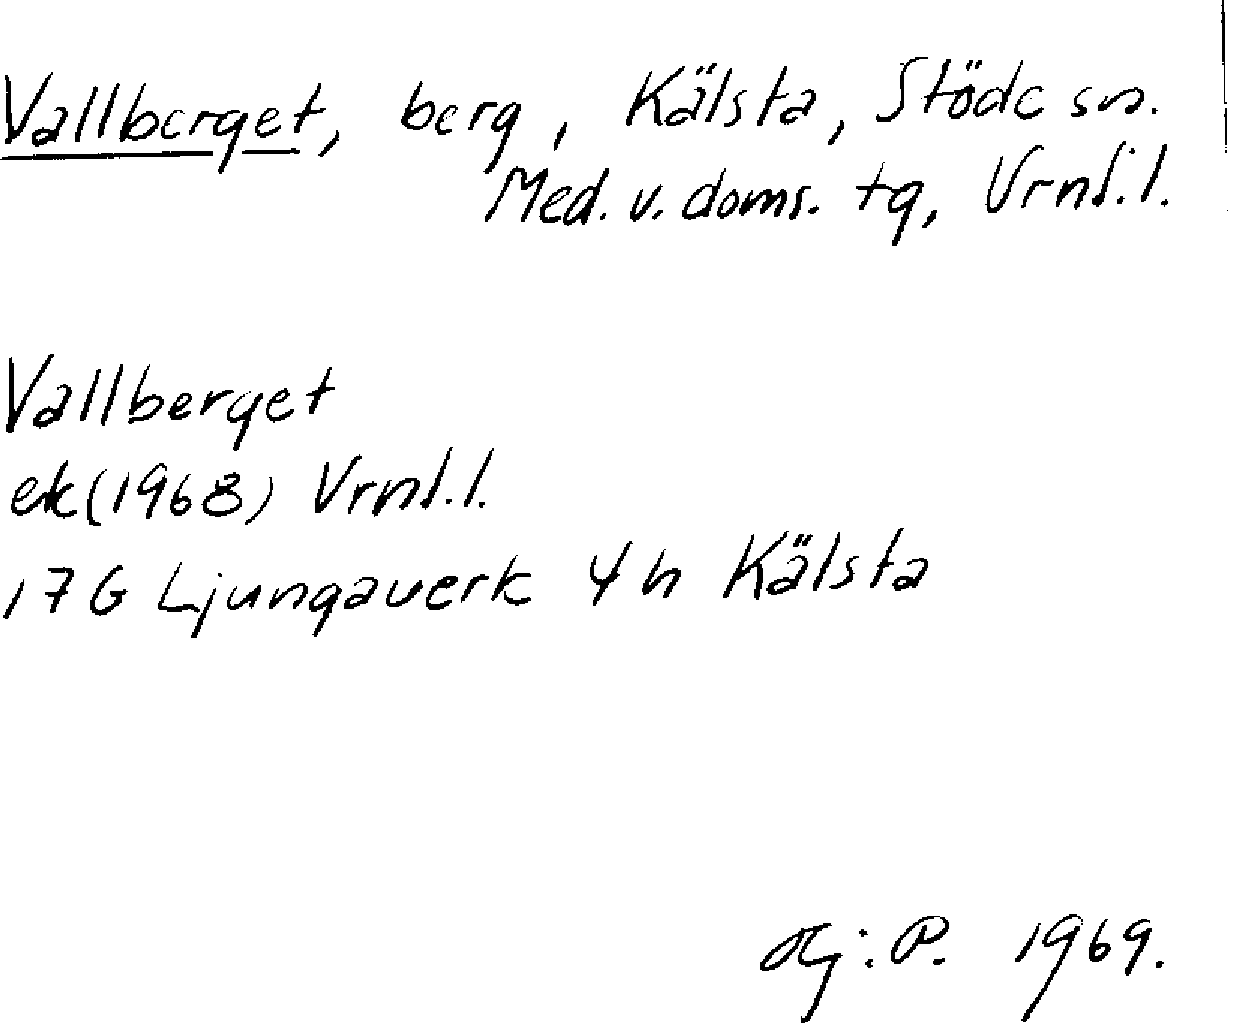 Vallberget, berg, Kälsta, Stöde sn.
Med. v. doms. tg, Vrnl.l.
Vallberget
ek(1968) Vrnl.l.
17G Ljungaverk 4h Kälsta
P. 1969.